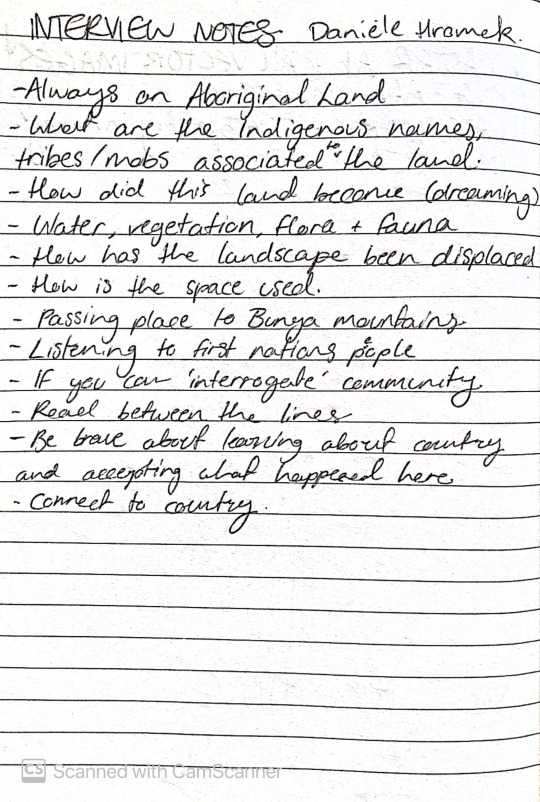 INTERVIEW NOTES Danièle Hromek.
- Always on Aboriginal Land
- What are the Indigenous names,
tribes/mobs associated to the land.
- How did this land become (dreaming)
- Water, vegetation, flora + fauna
- How has the landscape been displaced
- How is the space used.
- Passing place to Bunya mountains
- Listening to first nations people
- IF you can 'interrogate' community
- Read between the lines
- Be brave about learning about country
and accepting what happened here
- Connect to country.
CS Scanned with CamScanner